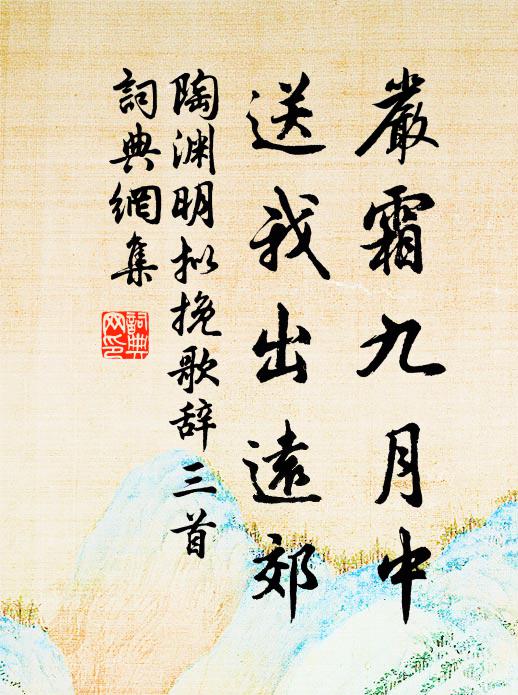 嚴霜九月中
送我出遠郊
陶渊明拟挽歌辞三首
詞典網集
詞典
网印